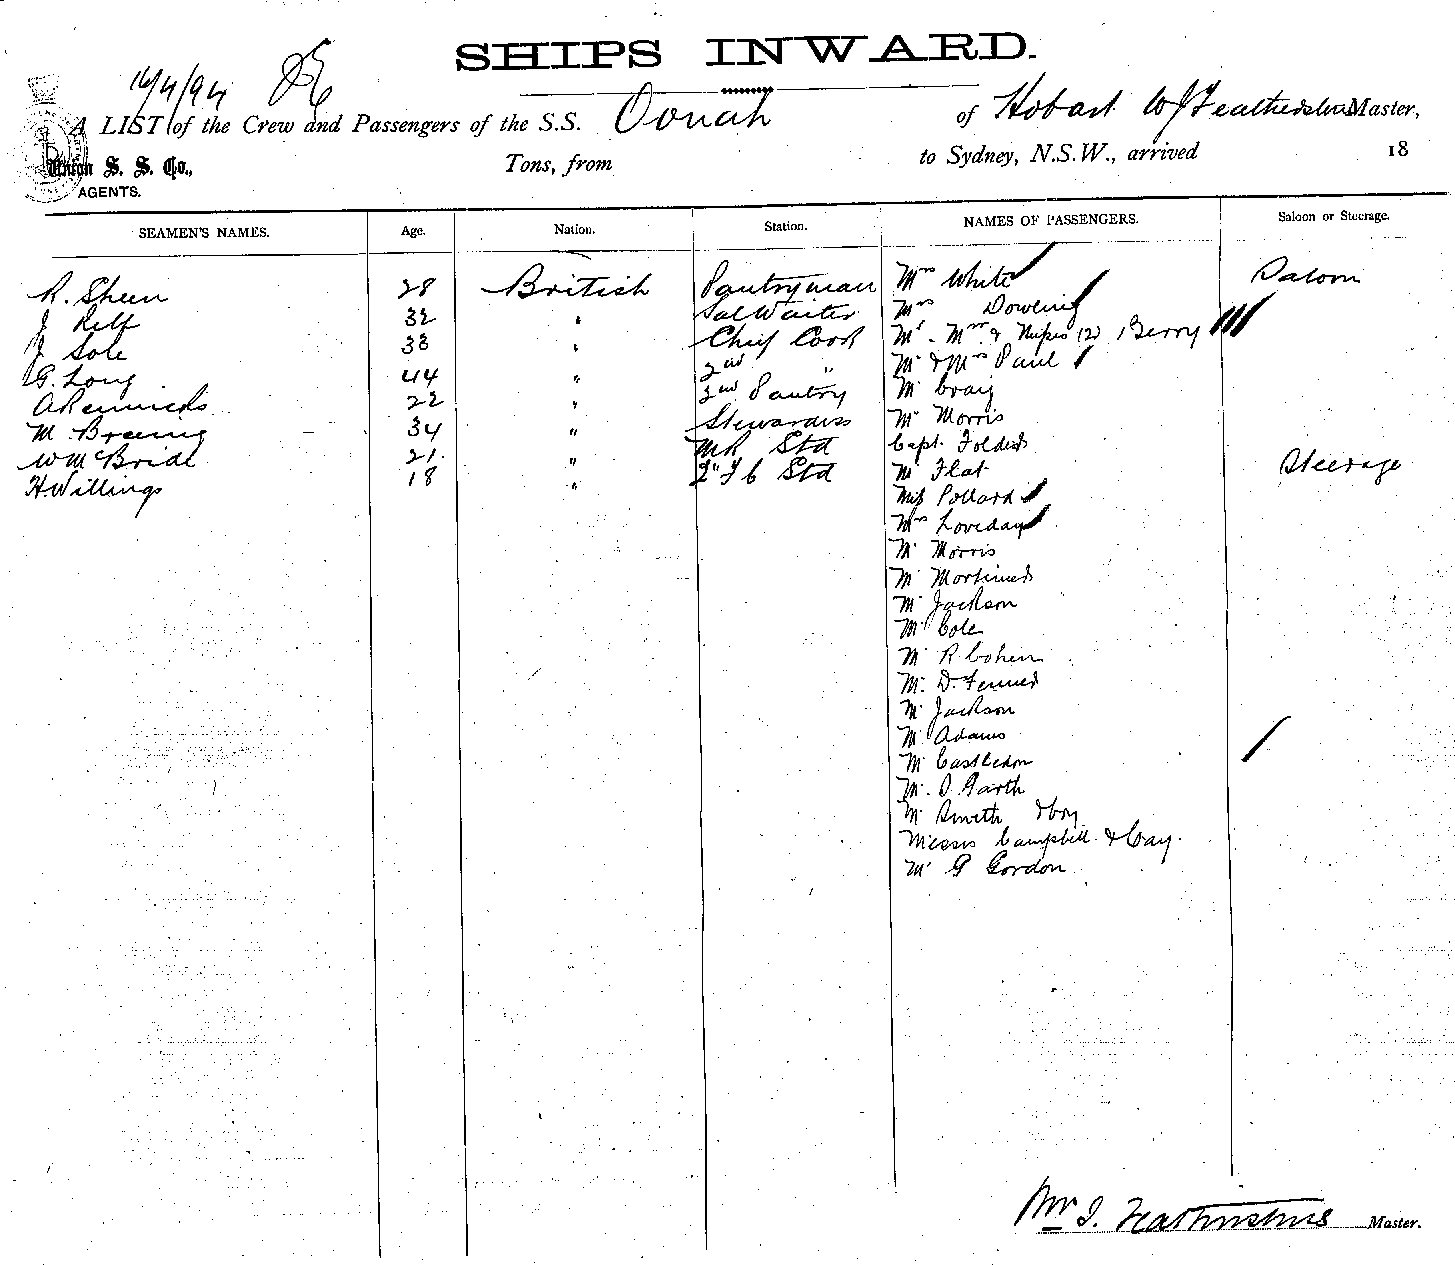 SHIPS INWARD.
16/4/94
A LIST of the Crew and Passengers of the S.S. Oonah of Hobart W J Featherstone Master,
Union S. S. Co., Tons, from to Sydney, N.S.W., arrived 18
AGENTS.
SEAMEN'S NAMES. Age. Nation. Station. NAMES OF PASSENGERS. Saloon or Steerage.
R. Sheen 28 British Pantryman Mrs White Saloon
J Relf 32 " Sal Waiter Mrs Dowling
J Sole 33 " Chief Cook Mr. Mrs & Misses (2) Berry
G. Long 44 " 2nd " Mr & Mrs Paul
A Rennicks 22 " 2nd Pantry Mr Craig
M Breenig 34 " Stewardess Mr Morris
W McBride 21 " MR Std Capt. Folder
H Willings 18 " Std Mr Flat Steerage
Miss Pollard
Mrs Loveday
Mr Morris
Mr Mortimer
Mr Jackson
Mr Cole
Mr R Cohen
Mr. D. Fenner
Mr Jackson
Mr Adams
Mr Castledon
Mr. D Garth
Mr Smith & boy
Messrs Campbell & Cay.
Mr G Gordon
Wm J. Featherstone Master.